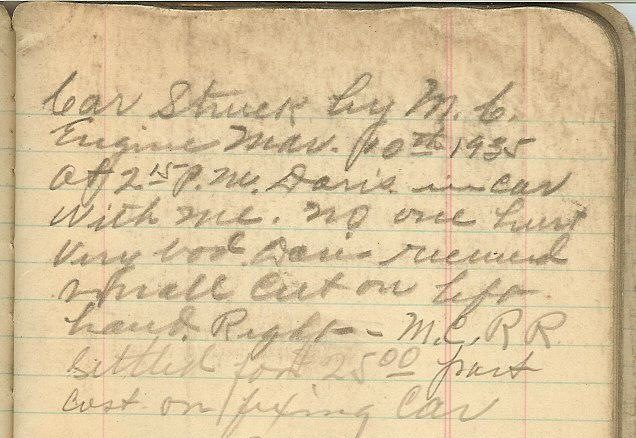 Car Struck by M. C.
Engine Mar. 10th 1935
at 2 15 P.M. Davis in car
with me. no one hurt
very bad Davis received
small cut on left
hand. Right - M.C. R R
settled for $ 25 00 part
cost on fixing Car